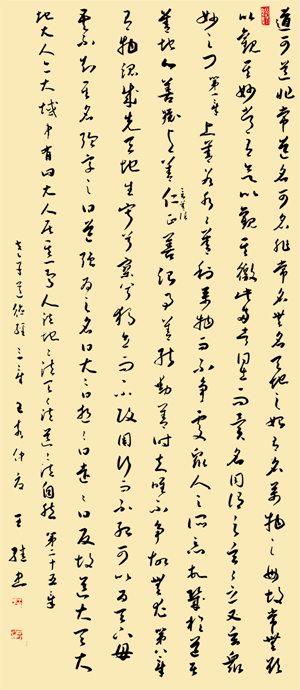 道可道非常道名可名非常名無名天地之始有名萬物之母故常無欲
以觀其妙常有欲以觀其徼此兩者同出而異名同謂之玄玄之又玄衆
妙之門 第一章 上善若水水善利萬物而不爭處衆人之所惡故幾於道居
善地心善淵與善仁言善信正善治事善能動善時夫唯不爭故無尤 第八章
有物混成先天地生寂兮寥兮獨立而不改周行而不殆可以為天下母
吾不知其名強字之曰道強為之名曰大大曰逝逝曰遠遠曰反故道大天大
地大人亦大域中有四大人居其一焉人法地地法天天法道道法自然 第二十五章
老子道德經三章 仲 王 書